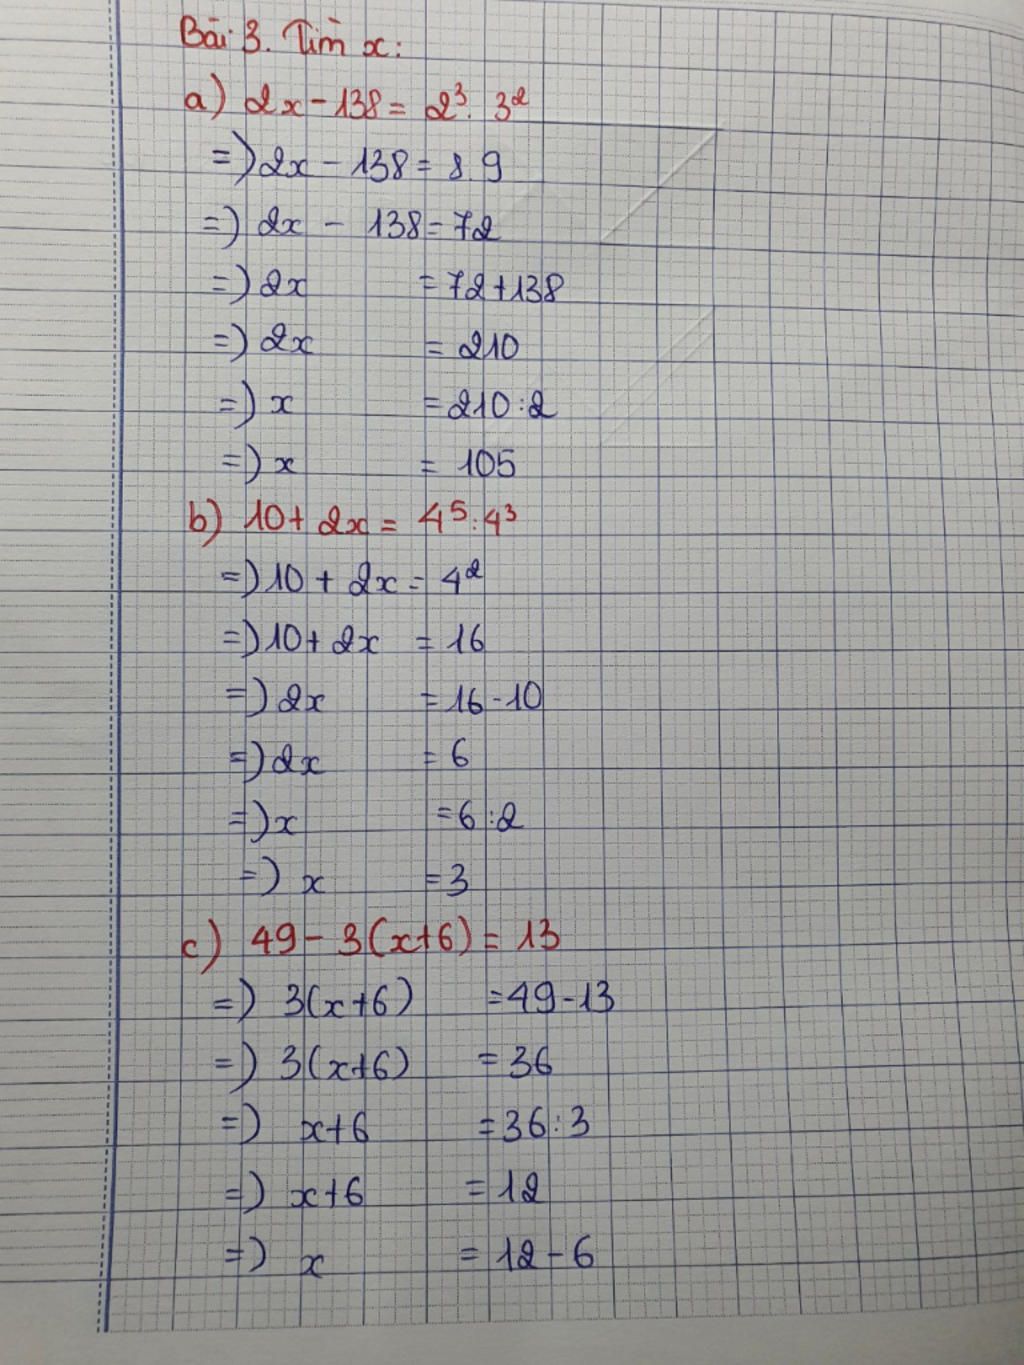 Bài 3. Tìm x:
a) 2x - 138 = 2³. 3²
=) 2x - 138 = 8.9
=) 2x - 138 = 72
=) 2x = 72 + 138
=) 2x = 210
=) x = 210 : 2
=) x = 105
b) 10 + 2x = 4⁵ : 4³
=) 10 + 2x = 4²
=) 10 + 2x = 16
=) 2x = 16 - 10
=) 2x = 6
=) x = 6 : 2
=) x = 3
c) 49 - 3(x+6) = 13
=) 3(x+6) = 49 - 13
=) 3(x+6) = 36
=) x+6 = 36 : 3
=) x+6 = 12
=) x = 12 - 6